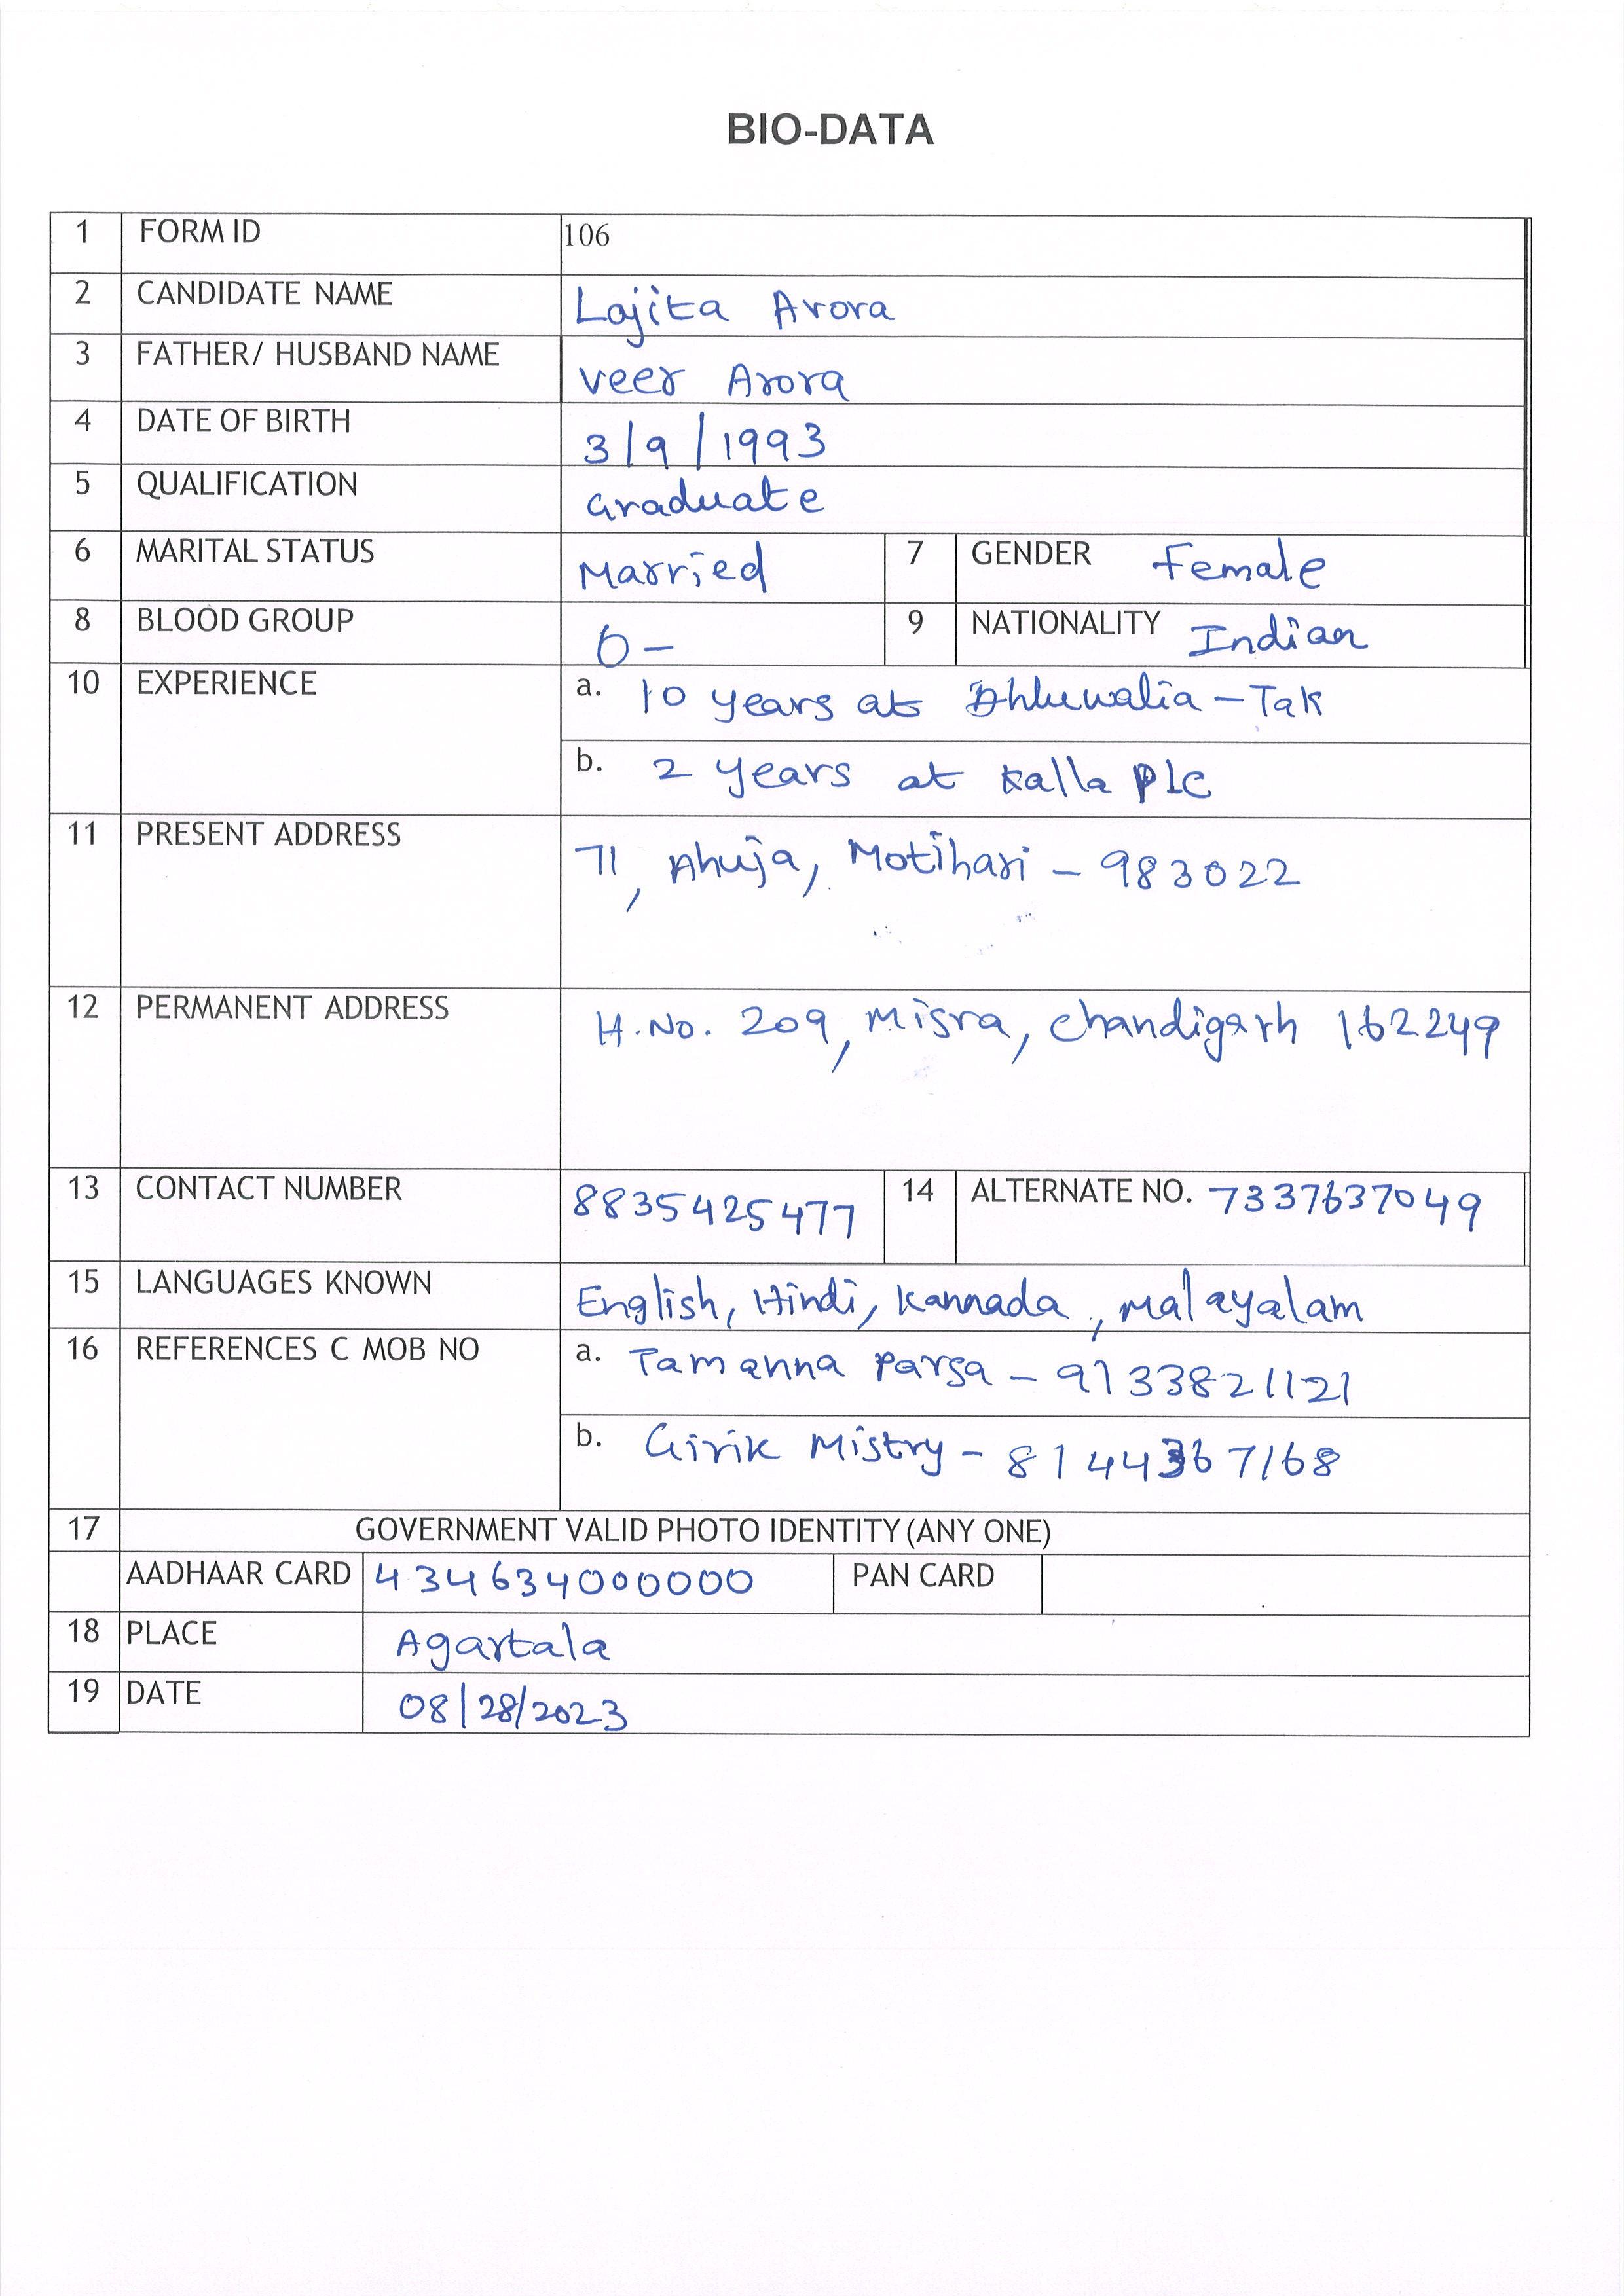 BIO-DATA
1 FORM ID 106
2 CANDIDATE NAME Lajita Arora
3 FATHER/ HUSBAND NAME Veer Arora
4 DATE OF BIRTH 3/9/1993
5 QUALIFICATION Graduate
6 MARITAL STATUS Married 7 GENDER Female
8 BLOOD GROUP O- 9 NATIONALITY Indian
10 EXPERIENCE a. 10 years at Ahluwalia-Tak
b. 2 years at Kalla PLC
11 PRESENT ADDRESS 71, Ahuja, Motihari - 983022
12 PERMANENT ADDRESS H.No. 209, Misra, Chandigarh 162249
13 CONTACT NUMBER 8835425477 14 ALTERNATE NO. 7337637049
15 LANGUAGES KNOWN English, Hindi, Kannada, Malayalam
16 REFERENCES C MOB NO a. Tamanna Parsa - 9133821121
b. Girik Mistry - 8144367168
17 GOVERNMENT VALID PHOTO IDENTITY (ANY ONE)
AADHAAR CARD 434634000000 PAN CARD
18 PLACE Agartala
19 DATE 08/28/2023